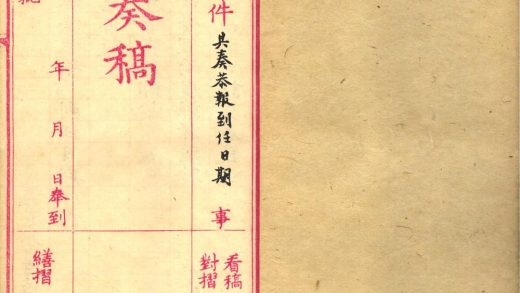 件 具奏恭報到任日期 事
看稿
對摺
奏稿
年 月 日奉到
繕摺